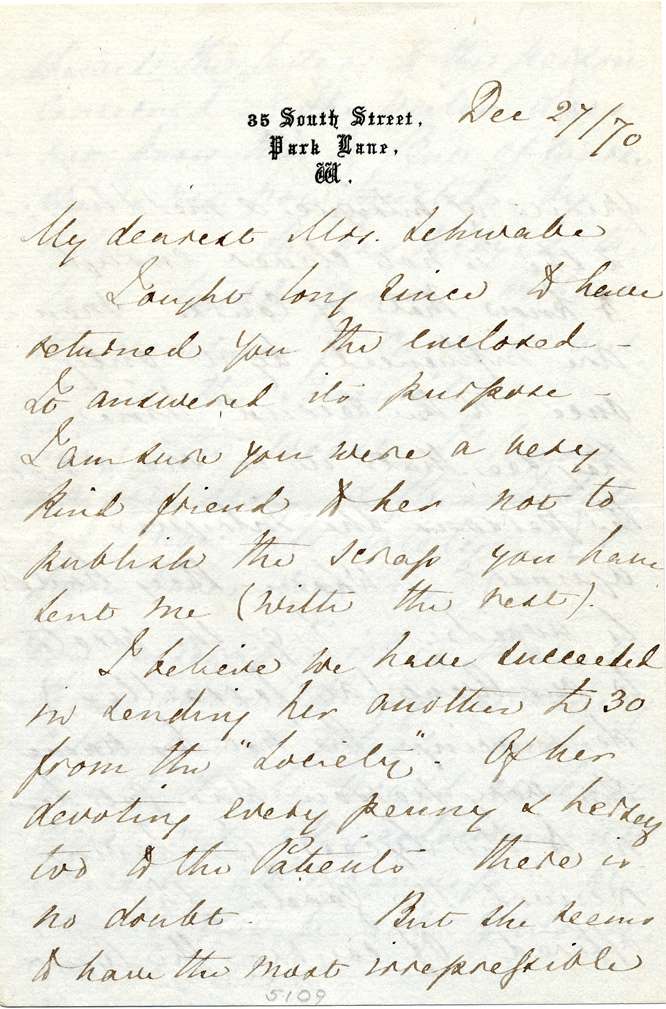 35 South Street,
Park Lane,
W.
Dec 27/70
My dearest Mrs. Schwabe
I ought long since to have
returned you the enclosed -
It answered its purpose -
I am sure you were a very
kind friend to her not to
publish the scrap you have
sent me (with the rest).
I believe we have succeeded
in sending her another £30
from the "Society". Of her
devoting every penny & herself
too to the Patients there is
no doubt. But she seems
to have the most irrepressible
5109